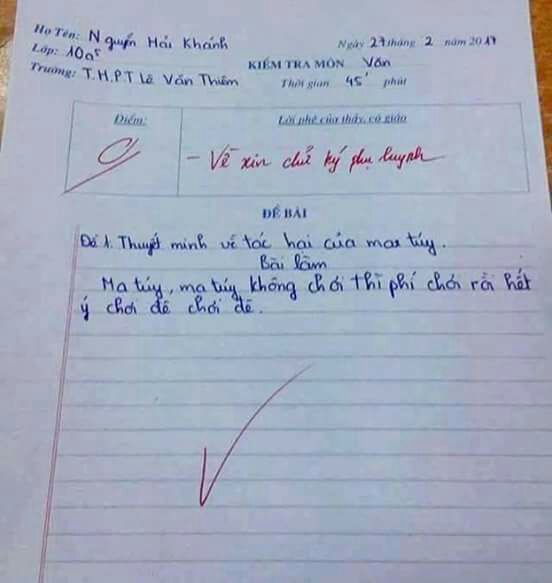 Họ Tên: Nguyễn Hải Khánh
Lớp: 10a5
Trường: T.H.P.T Lê Văn Thiêm
Ngày 27 tháng 2 năm 2017
KIỂM TRA MÔN Văn
Thời gian 45' phút
Điểm:
Lời phê của thầy, cô giáo
0
- Về xin chữ ký phụ huynh
ĐỀ BÀI
Đề 1. Thuyết minh về tác hại của ma túy.
Bài làm
Ma túy, ma túy không chơi thì phí chơi rồi hết
ý chơi đê chơi đê.